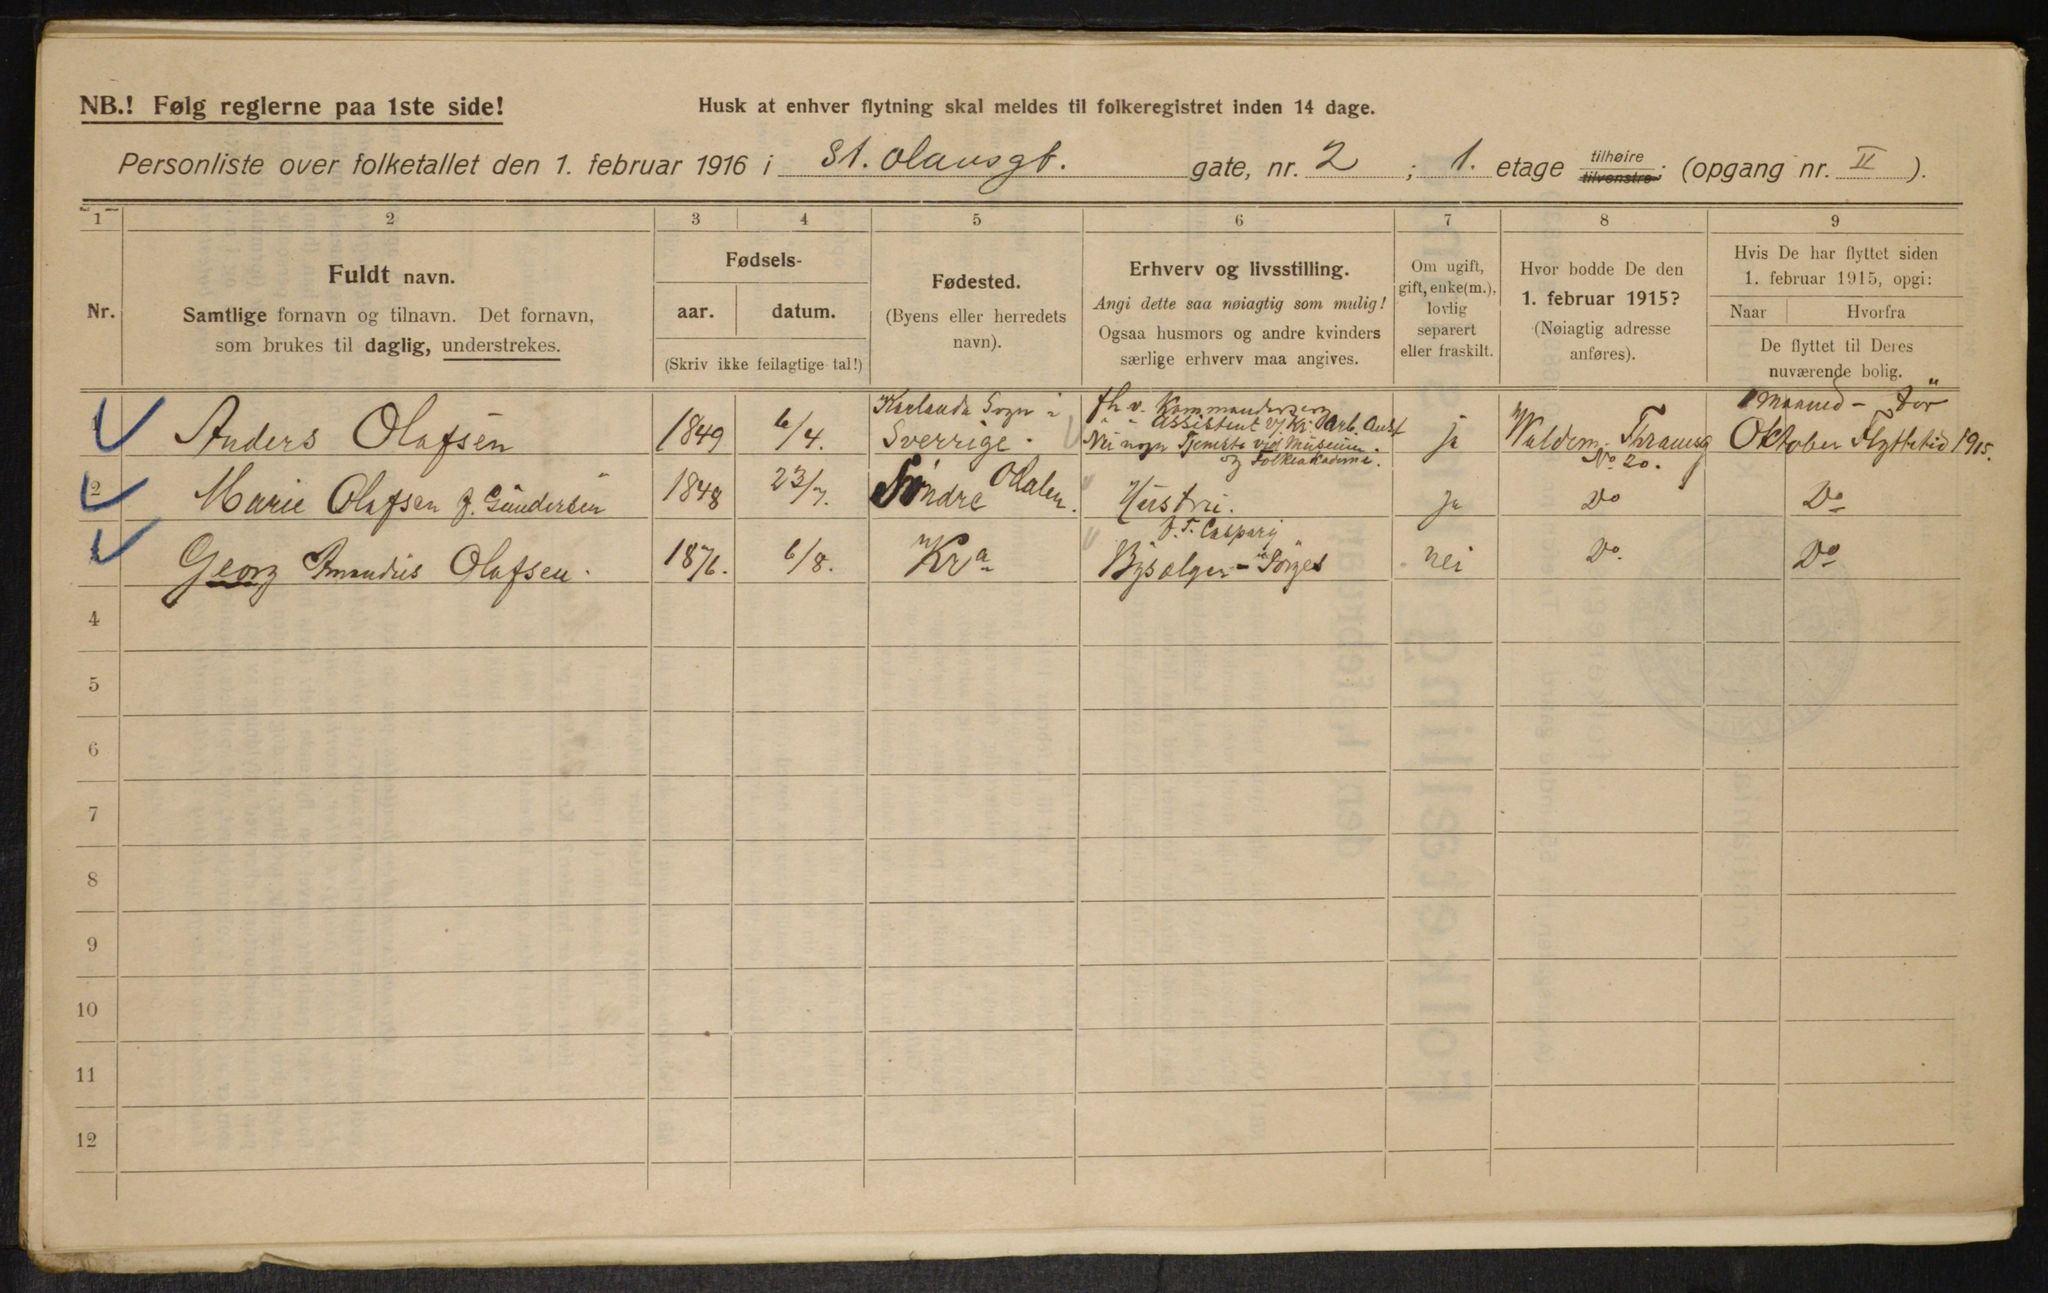 NB.! Følg reglerne paa 1ste side!
Husk at enhver flytning skal meldes til folkeregistret inden 14 dage.
Personliste over folketallet den 1. februar 1916 i St. Olavsgt. gate, nr. 2 ; 1. etage tilhøire tilvenstre ; (opgang nr. II ).
1 2 3 4 5 6 7 8 9
Nr.
Fuldt navn.
Samtlige fornavn og tilnavn. Det fornavn,
som brukes til daglig, understrekes.
Fødsels-
aar. datum.
(Skriv ikke feilagtige tal!)
Fødested.
(Byens eller herredets
navn).
Erhverv og livsstilling.
Angi dette saa nøiagtig som mulig!
Ogsaa husmors og andre kvinders
særlige erhverv maa angives.
Om ugift,
gift, enke(m.),
lovlig
separert
eller fraskilt.
Hvor bodde De den
1. februar 1915?
(Nøiagtig adresse
anføres).
Hvis De har flyttet siden
1. februar 1915, opgi:
Naar Hvorfra
De flyttet til Deres
nuværende bolig.
1 Anders Olafsen 1849 6/4. Karlanda Sogn i
Sverrige.
Assistent v/ Kr. Arb. Anst
Nu Tjeneste ved Museum
og Folkeakademi.
ja
Waldem. Thranesg
No 20.
Maaned - før
Oktober Flyttetid 1915.
2 Marie Olafsen f. Gundersen 1848 23/7. Søndre Odalen. Hustru. ja Do Do
Georg Amandus Olafsen. 1876. 6/8. Kra
J. T. Caspary
Bysælger - Börges
nei Do. Do
4
5
6
7
8
9
10
11
12